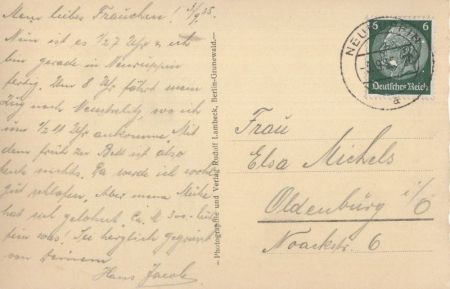 Mein liebes Frauchen! 5/9 35.
Nun ist es 1/2 7 Uhr & ich
bin gerade in Neuruppin
fertig. Um 8 Uhr fährt mein
Zug nach Neustrelitz, wo ich
um 1/2 10 Uhr ankomme. Mit
dem früh zu Bett ist also
heute nichts. Da werde ich wohl
gut schlafen. Aber meine Mühe
hat sich gelohnt.
Sei herzlich gegrüsst
von Deinem
Hans Jacob
Photographie und Verlag Rudolf Lambeck, Berlin-Grunewald.
NEURUPPIN
a
6 6
Deutsches Reich
Frau
Elsa Michels
Oldenburg i/O
Noackstr. 6